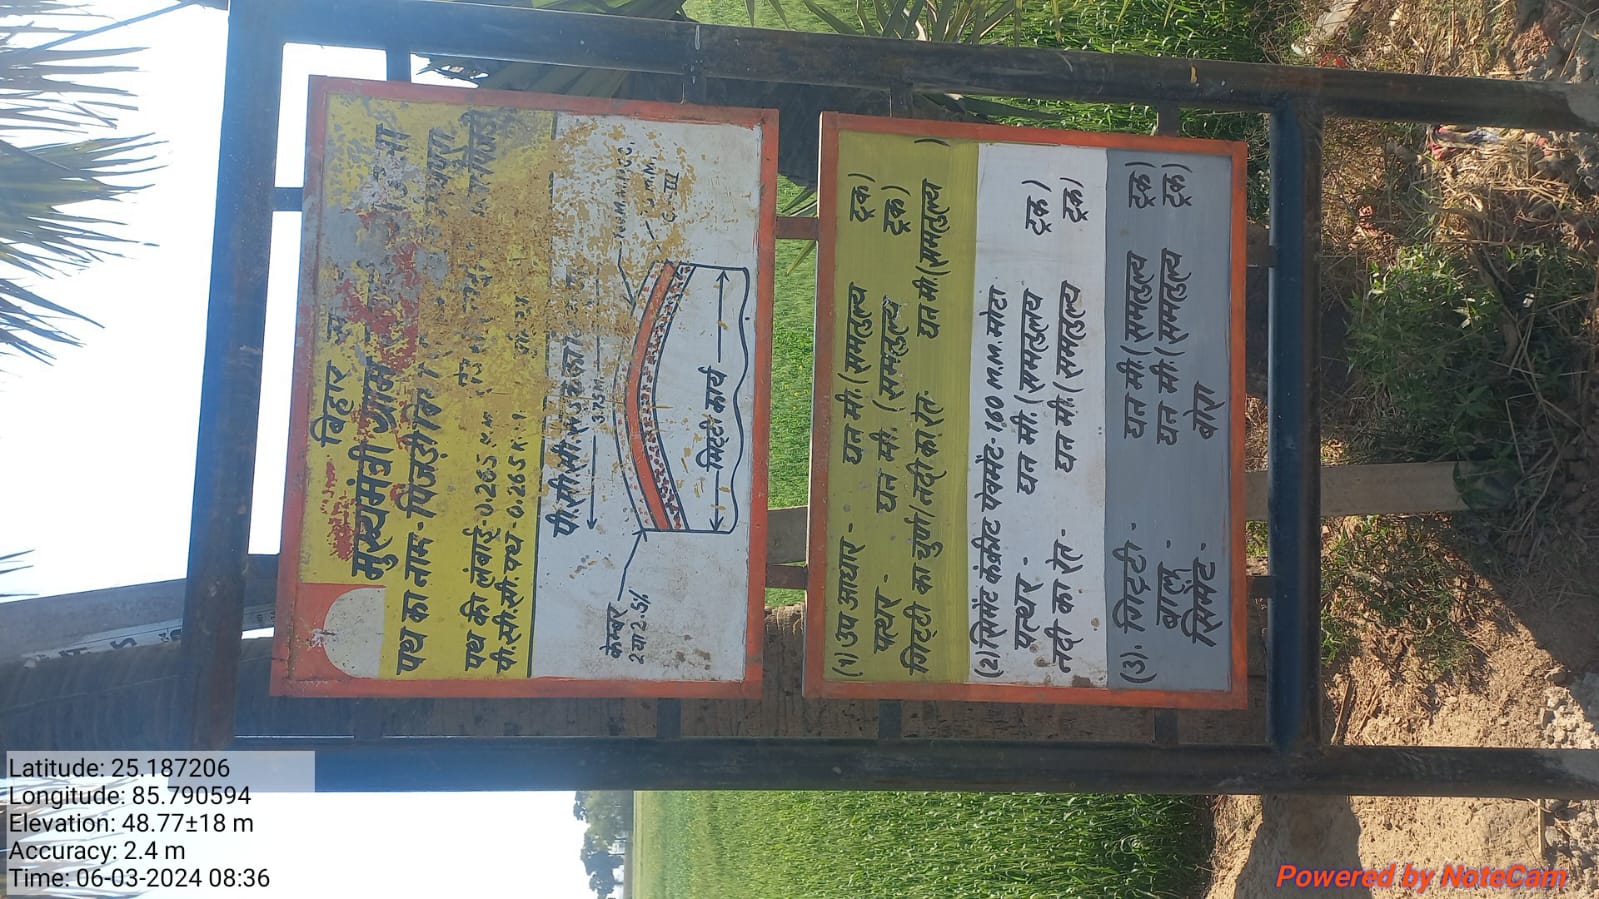 बिहार
मुख्यमंत्री ग्राम
पथ का नाम - पिजड़ी
पथ की लंबाई - 0.265
पी.सी.सी. पथ - 0.265
पी.सी.सी.
3.75
C.C.
G.M.M.
G III
केम्बर
2 या 2.5%
मिट्टी कार्य
(1) उप आधार - घन मी. (समतुल्य ट्रक)
पत्थर - घन मी. (समतुल्य ट्रक)
मिट्टी का चुर्ण / नदी का रेत: घन मी (समतुल्य )
(2) सिमेंट कंक्रीट पेवमेंट - 160 M.M. मोटा
पत्थर - घन मी. (समतुलय ट्रक)
नदी का रेत - घन मी. (समतुल्य ट्रक)
(3). गिट्टी - घन मी. (समतुल्य ट्रक)
बालू - घन मी. (समतुल्य ट्रक)
सिमेंट - बोरा
Latitude: 25.187206
Longitude: 85.790594
Elevation: 48.77±18 m
Accuracy: 2.4 m
Time: 06-03-2024 08:36
Powered by NoteCam